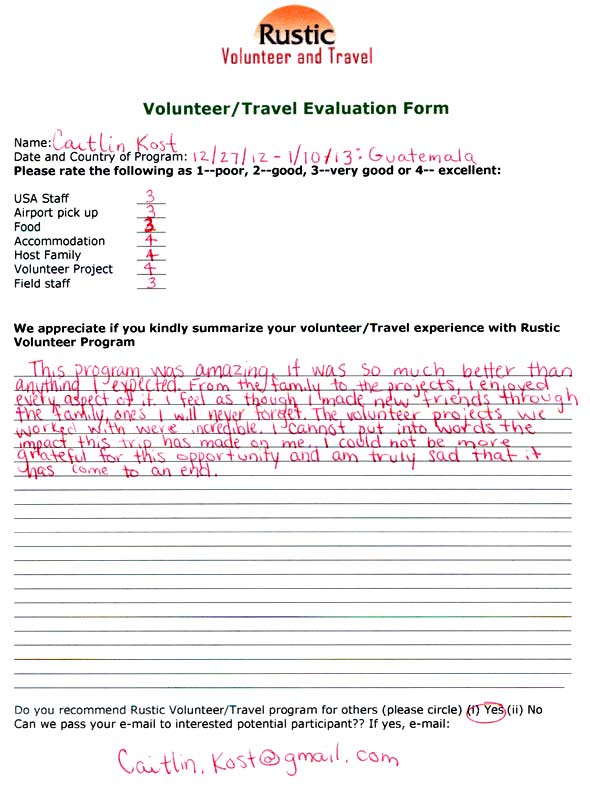 Rustic
Volunteer and Travel
Volunteer/Travel Evaluation Form
Name: Caitlin Kost
Date and Country of Program: 12/27/12 - 1/10/13: Guatemala
Please rate the following as 1--poor, 2--good, 3--very good or 4-- excellent:
USA Staff 3
Airport pick up 3
Food 3
Accommodation 4
Host Family 4
Volunteer Project 4
Field staff 3
We appreciate if you kindly summarize your volunteer/Travel experience with Rustic
Volunteer Program
This program was amazing. it was so much better than
anything I expected. From the family to the projects, I enjoyed
every aspect of it. I feel as though I made new friends through
the family, ones I will never forget. The volunteer projects we
worked with were incredible. I cannot put into words the
impact this trip has made on me. I could not be more
grateful for this opportunity and am truly sad that it
has come to an end.
Do you recommend Rustic Volunteer/Travel program for others (please circle) (i) Yes (ii) No
Can we pass your e-mail to interested potential participant?? If yes, e-mail:
Caitlin.Kost@gmail.com